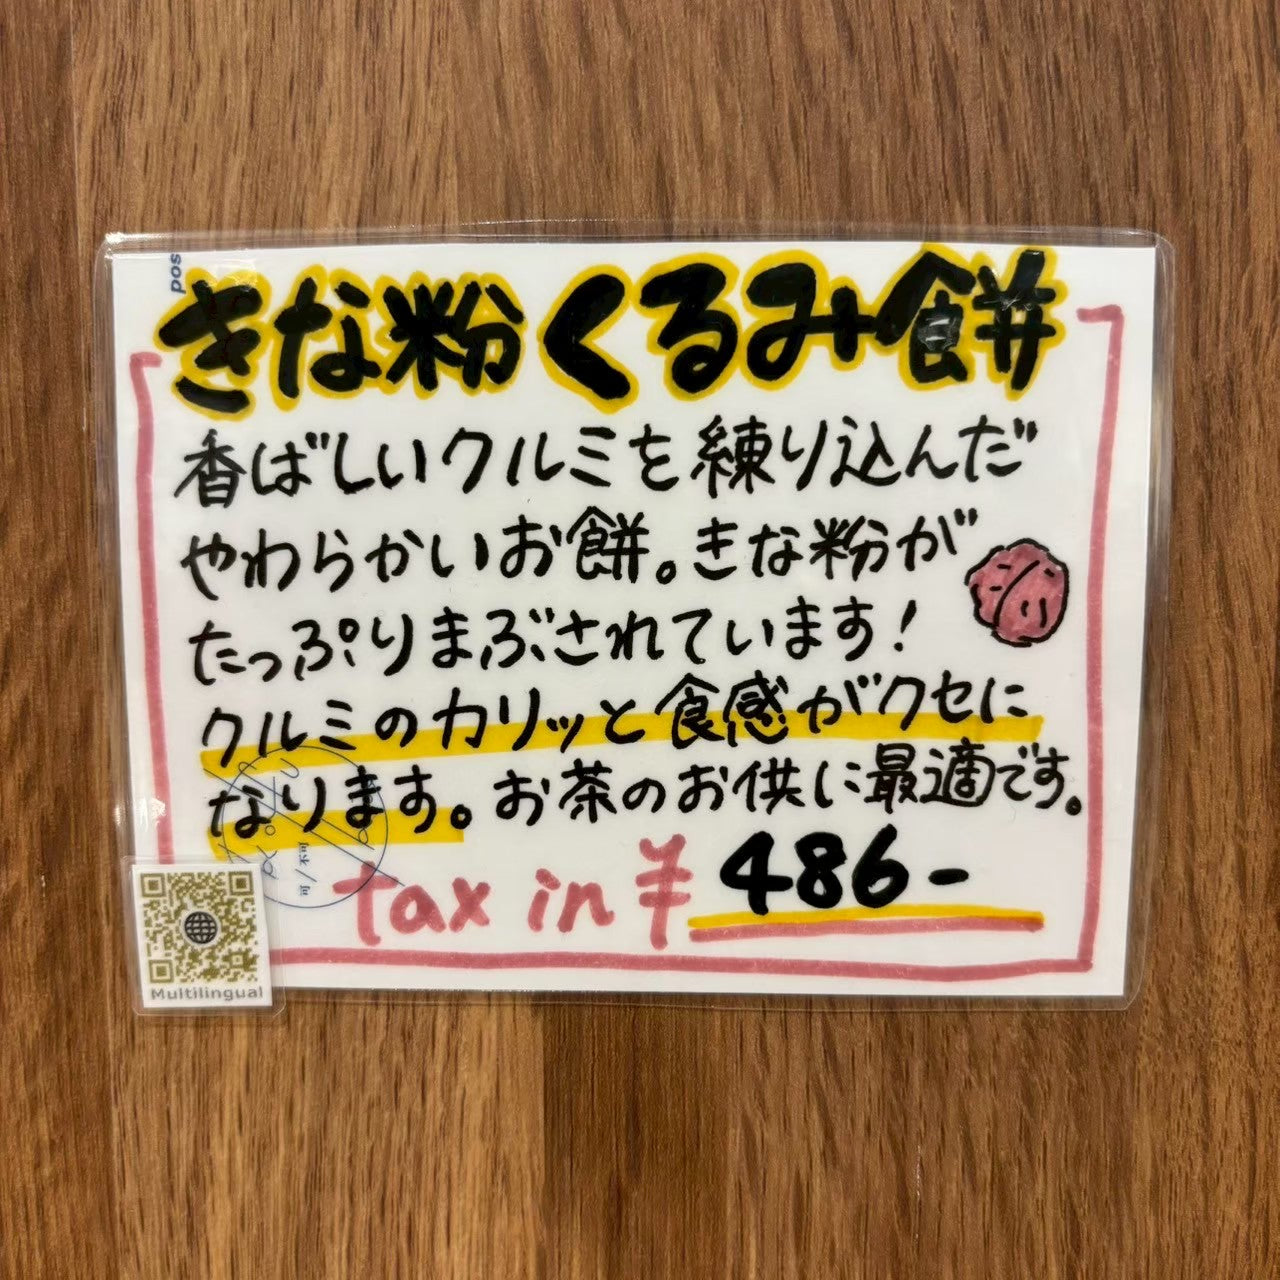 pos
きな粉くるみ餅
香ばしいクルミを練り込んだ
やわらかいお餅。きな粉が
たっぷりまぶされています!
クルミのカリッと食感がクセに
なります。お茶のお供に最適です。
tax in ¥486-
Multilingual